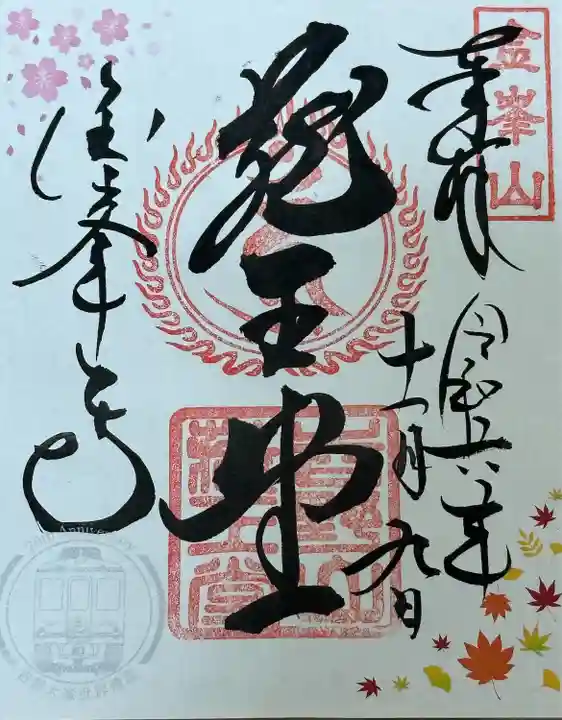 金峯山
奉拝
令和六年
十一月九日
蔵王堂
金峯山寺
20th Anniversary